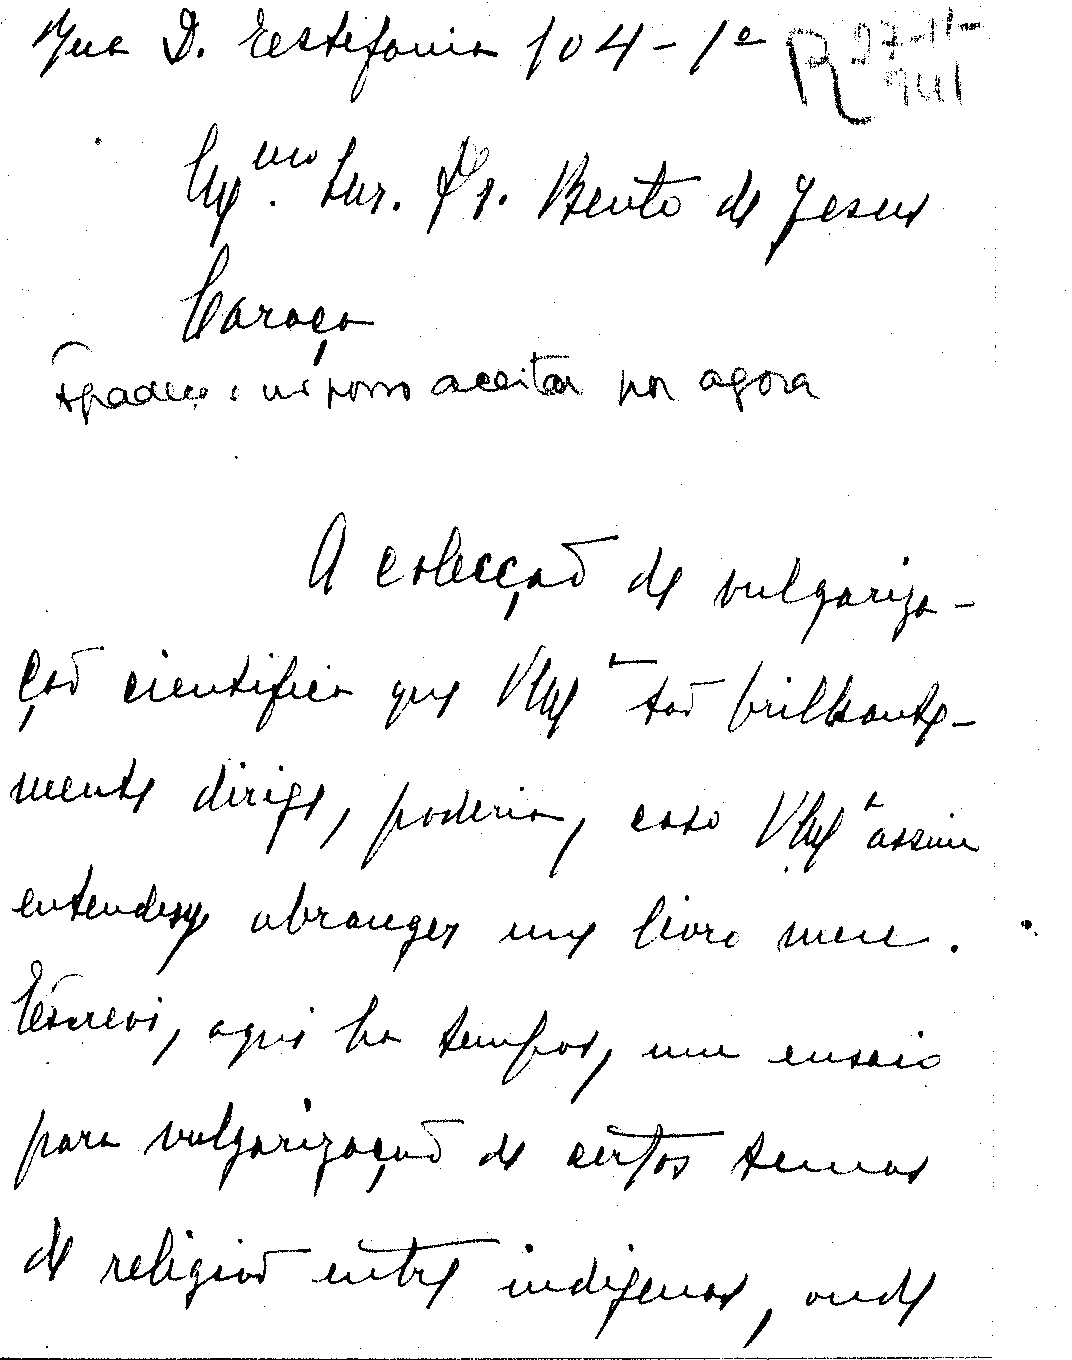 Rua D. Estefania 104-1º
R 27-11-
941
Exmo. Snr. Dr. Bento de Jesus
Caraça
Agradeço e não posso aceitar por agora
A colecção de vulgariza-
ção cientifica que V Exª tão brilhante-
mente dirige, poderia, caso V Exª assim
entendesse abranger um livro meu.
Escrevi, aqui ha tempos, um ensaio
para vulgarização de certos temas
de religião entre indigenas, onde